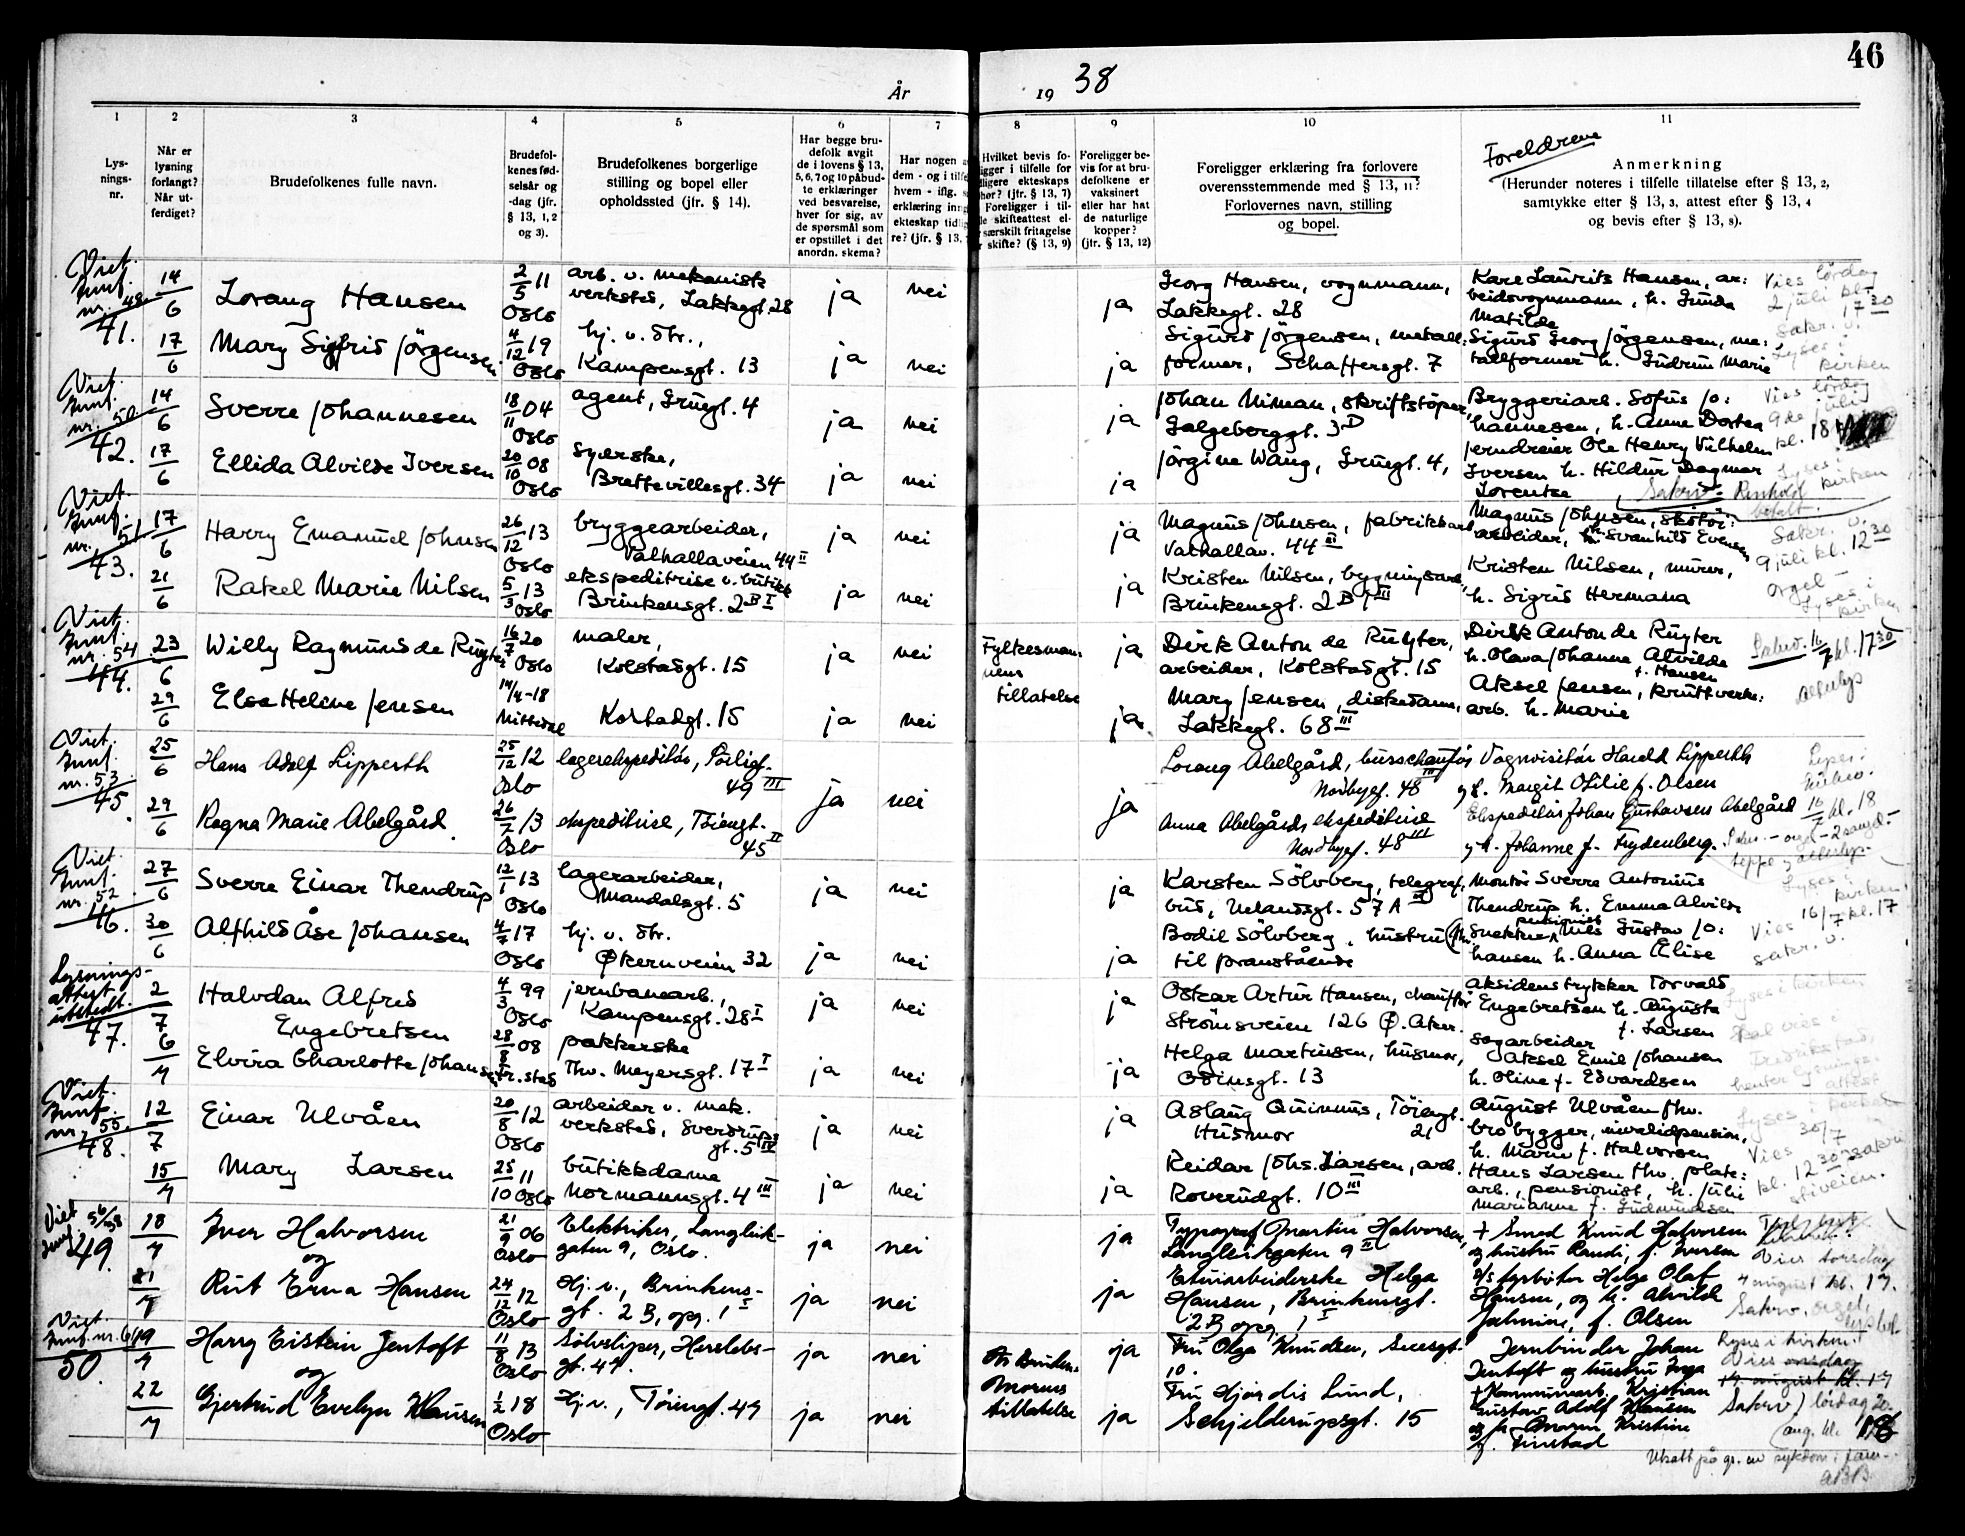 46
År 1938
1 2 3 4 5 6 7 8 9 10 11
Lys-
nings-
nr.
Når er
lysning
forlangt?
Når ut-
ferdiget?
Brudefolkenes fulle navn.
Brudefol-
kenes fød-
selsår og
-dag (jfr.
§ 13, 1, 2
og 3).
Brudefolkenes borgerlige
stilling og bopel eller
opholdssted (jfr. § 14).
Har begge bru-
defolk avgit
de i lovens § 13,
5, 6, 7 og 10 påbud-
te erklæringer
ved besvarelse,
hver for sig, av
de spørsmål som
er opstillet i det
anordn. skema?
Har nogen
dem - og i tilf
hvem - iflg.
erklæring inng
ekteskap tidlig
re? (jfr. § 13,
Hvilket bevis fo-
igger i tilfelle for
dligere ekteskaps
hør? (jfr. § 13, 7)
Foreligger i til-
le skifteattest el-
særskilt fritagelse
skifte? (§ 13, 9)
Foreligger be-
vis for at bru-
defolkene er
vaksinert
eller har hat
de naturlige
kopper?
(jfr. § 13, 12)
Foreligger erklæring fra forlovere
overensstemmende med § 13, 11?
Forlovernes navn, stilling
og bopel.
Foreldrene
Anmerkning
(Herunder noteres i tilfelle tillatelse efter § 13, 2,
samtykke efter § 13, 3, attest efter § 13, 4
og bevis efter § 13, 8).
Viet.
nr. 48.
41.
14/6 Lorang Hansen 2/5 11 Oslo
arb. v. mekanisk
verksted, Lakkegt. 28
ja nei ja
Georg Hansen, vognmann,
Lakkegt. 28
Kare Laurits Hansen, ar:
beidsvognmann, h. Gunda
Matilde
Vies lørdag
2 juli kl.
17 30
17/6 Mary Sigfrid Jørgensen 4/12 19 Oslo
hj. v. str.,
Kampensgt. 13
ja nei ja
Sigurd Jørgensen, metall:
former, Schaffersgt. 7
Sigurd Georg Jørgensen, me:
tallformer h. Gudrun Marie
Sakr. v.
Lyses i
kirken
Viet.
nr. 50
42.
14/6 Sverre Johannesen 18/11 04 Oslo
agent, Gruegt. 4
ja nei ja
Johan Niman, skriftstøper,
Galgeberggt. 3 D
Bryggeriarb. Sofus Jo:
hannesen, h. Anne Dortea
Vies lørdag
9de juli
kl. 18
17/6 Ellida Alvilde Iversen 20/10 08 Oslo
syerske,
Brettevillesgt. 34
ja nei ja
Jørgine Wang, Gruegt. 4,
Jerndreier Ole Henry Vilhelm
Iversen h. Hildur Dagmar
Lorentze
Lyses i
kirken
Viet.
nr. 51
43.
17/6 Harry Emanuel Johnsen 26/12 13 Oslo
bryggearbeider,
Valhallaveien 44 II
ja nei ja
Magnus Johnsen, fabrikkarb
Valhallav. 44 III
Magnus Johnsen, skotøi:
arbeider, h. Svanhild Evensen
Sakr. v.
9 juli kl. 12 30
21/6 Rakel Marie Nilsen 5/3 13 Oslo
ekspeditrise v. butikk
Brinkensgt. 2 B I
ja nei ja
Kristen Nilsen, bygningsarb,
Brinkensgt. 2 B III
Kristen Nilsen, murer,
h. Sigrid Hermana
orgel -
Lyses i
kirken
Viet.
nr. 54
44.
23/6 Willy Raymund de Ruyter 16/7 20 Oslo
maler,
Kolstadgt. 15
ja nei
Fylkesman-
nens
tillatelse
ja
Dirk Anton de Ruyter,
arbeider, Kolstadgt. 15
Dirk Anton de Ruyter
h. Olava Johanne Alvilde
f. Hansen
16/7 kl. 17 30
29/6 Else Helene Jensen 14/4-18 Nittedal
Kolstadgt. 15
ja nei ja
Mary Jensen, diskedame,
Lakkegt. 68 III
Aksel Jensen, kruttverks:
arb. h. Marie
Viet.
nr. 53
45.
25/6 Hans Adolf Lipperth 25/12 12 Oslo
lagerekspeditør,
49 III
ja nei ja
Lorang Abelgård, busschauffør
Nordbygt. 48 III
Vognvisitør Harald Lipperth
og h. Margit Otilie f. Olsen
Lyses i
29/6 Ragna Marie Abelgård 26/7 13 Oslo
ekspeditrise, Tøiengt.
45 II
Anna Abelgård, ekspeditrise
Nordbygt. 48 III
Ekspeditør Johan Gustavsen Abelgård
og h. Johanne f. Frydenberg.
kl. 18
Viet.
nr. 52
46.
27/6 Sverre Einar Thendrup 12/1 13 Oslo
lagerarbeider,
Mandalsgt. 5
ja nei ja
Karsten Sölvberg, telegraf,
bud, Uelandsgt. 57 A
Montør Sverre Antonius
Thendrup h. Emma Alvilde
Lyses i
kirken.
30/6 Alfhild Åse Johansen 4/7 17 Oslo
hj. v. str.
Økernveien 32
ja nei ja
Bodil Sölvberg, hustru
til pranstående
Snekker, pensionist Nils Gustav Jo:
hansen h. Anna Elise
Vies 16/7 kl. 17
sakr. v.
Lysnings-
attest
utstedt.
47.
2/7 Halvdan Alfred
Engebretsen 4/3 99 Oslo
jernbanearb.,
Kampensgt. 28 I
ja nei ja
Oskar Artur Hansen, chauffør
Strømsveien 126 Ø. Aker.
Aksidenstrykker Torvald
Engebretsen h. Augusta
f. Larsen
Lyses i kirken
Skal vies i
Fredrikstad,
6/7 Elvira Charlotte Johansen 28/8 08 Fr.stad
pakkerske
Thv. Meyersgt. 17 I
ja nei ja
Helga Martinsen, husmor,
Odinsgt. 13
sagarbeider
Aksel Emil Johansen
h. Oline f. Edvardsen
henter lysnings-
attest
Viet.
nr. 55.
48.
12/7 Einar Ulvåen 20/8 12 Oslo
arbeider v. mek.
verksted, Sverdrups
gt. 5 IV
ja nei ja
Aslaug Quinnus, Tøiengt.
Husmor 21
August Ulvåen fhv.
brobygger, invalidpension,
h. Marie f. Halvorsen
Lyses i kirken
Vies 30/7
15/7 Mary Larsen 25/10 11 Oslo
butikkdame
Normannsgt. 4 III
ja nei ja
Reidar Johs. Larsen, arb.
Roverudgt. 10 III
Hans Larsen fhv. plate:
arb., pensionist, h. Julie
Marianne f. Gudmundsen
kl. 12 30
Viet 56/38
49.
18/7 Iver Halvorsen
og 21/9 06 Oslo
Elektriker, Langleik-
gaten 9, Oslo.
ja nei ja
Typograf Martin Halvorsen,
Langleikgaten 9 II
+ Smed Knud Halvorsen
og hustru Randi, f. Iversen
Vies torsdag
4 august kl. 17.
21/7 Rut Erna Hansen 24/12 12 Oslo
Hj. v., Brinkens-
gt. 2 B, opg. 1 I
ja nei ja
Etuiarbeiderske Helga
Hansen, Brinkensgt.
2 B opg. 1 I
Fyrbøter Helge Olaf
Hansen, og h. Alvilde
Jalmine, f. Olsen
Sakrv. orgel,
Viet.
nr. 64
50.
19/7 Harry Eistein Jentoft
og 11/8 13 Oslo
Sølvsliper, Herslebs-
gt. 47.
ja nei
tillatelse
ja
Fru Olga Knudsen,
10.
Jernbinder Johan
Jentoft og hustru Inga
Lyses i kirken!
Vies onsdag
17 august kl. 17
22/7 Gjertrud Evelyn Hansen 1/2 18 Oslo
Hj. v., Tøiengt. 47
ja nei ja
Fru Hjørdis Lund,
Schjelderupsgt. 15
+ Kommunearb. Kristian
Gustav Adolf Hansen
og h. Maren Kristine
f. Finstad
Sakrv) lørdag 20.
aug. kl. 18
Utsatt på gr. av sykdom i fam.